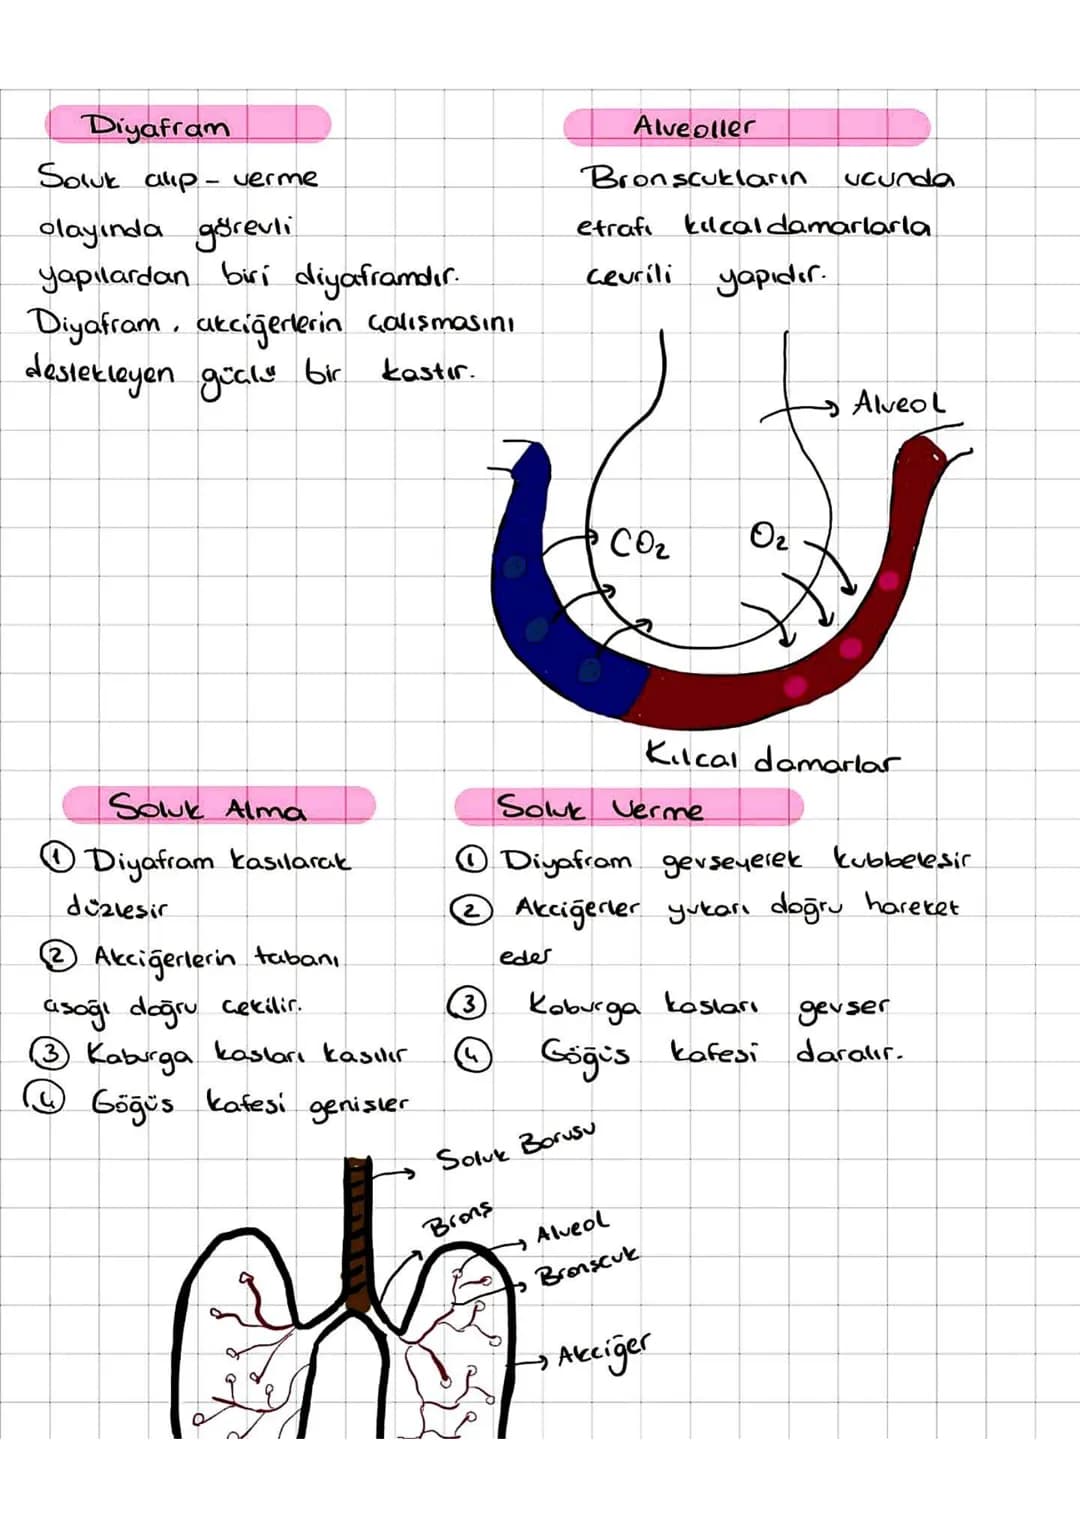 Diyafram
Soluk alıp - verme
olayında görevli
yapılardan biri diyaframdır.
Diyafram, akciğerlerin çalışmasını
destekleyen güçlü bir kastır.
Alveoller
Bronşcukların ucunda
etrafı kılcal damarlarla
çevrili yapıdır.
Alveol
CO2
O2
Kılcal damarlar
Soluk Alma
1 Diyafram kasılarak
düzleşir
2 Akciğerlerin tabanı
aşağı doğru çekilir.
3 Kaburga kasları kasılır
4 Göğüs kafesi genişler
Soluk Verme
1 Diyafram gevşeyerek kubbeleşir
2 Akciğerler yukarı doğru hareket
eder
3 Kaburga kasları gevşer
4 Göğüs kafesi daralır.
Soluk Borusu
Bronş
Alveol
Bronşcuk
Akciğer